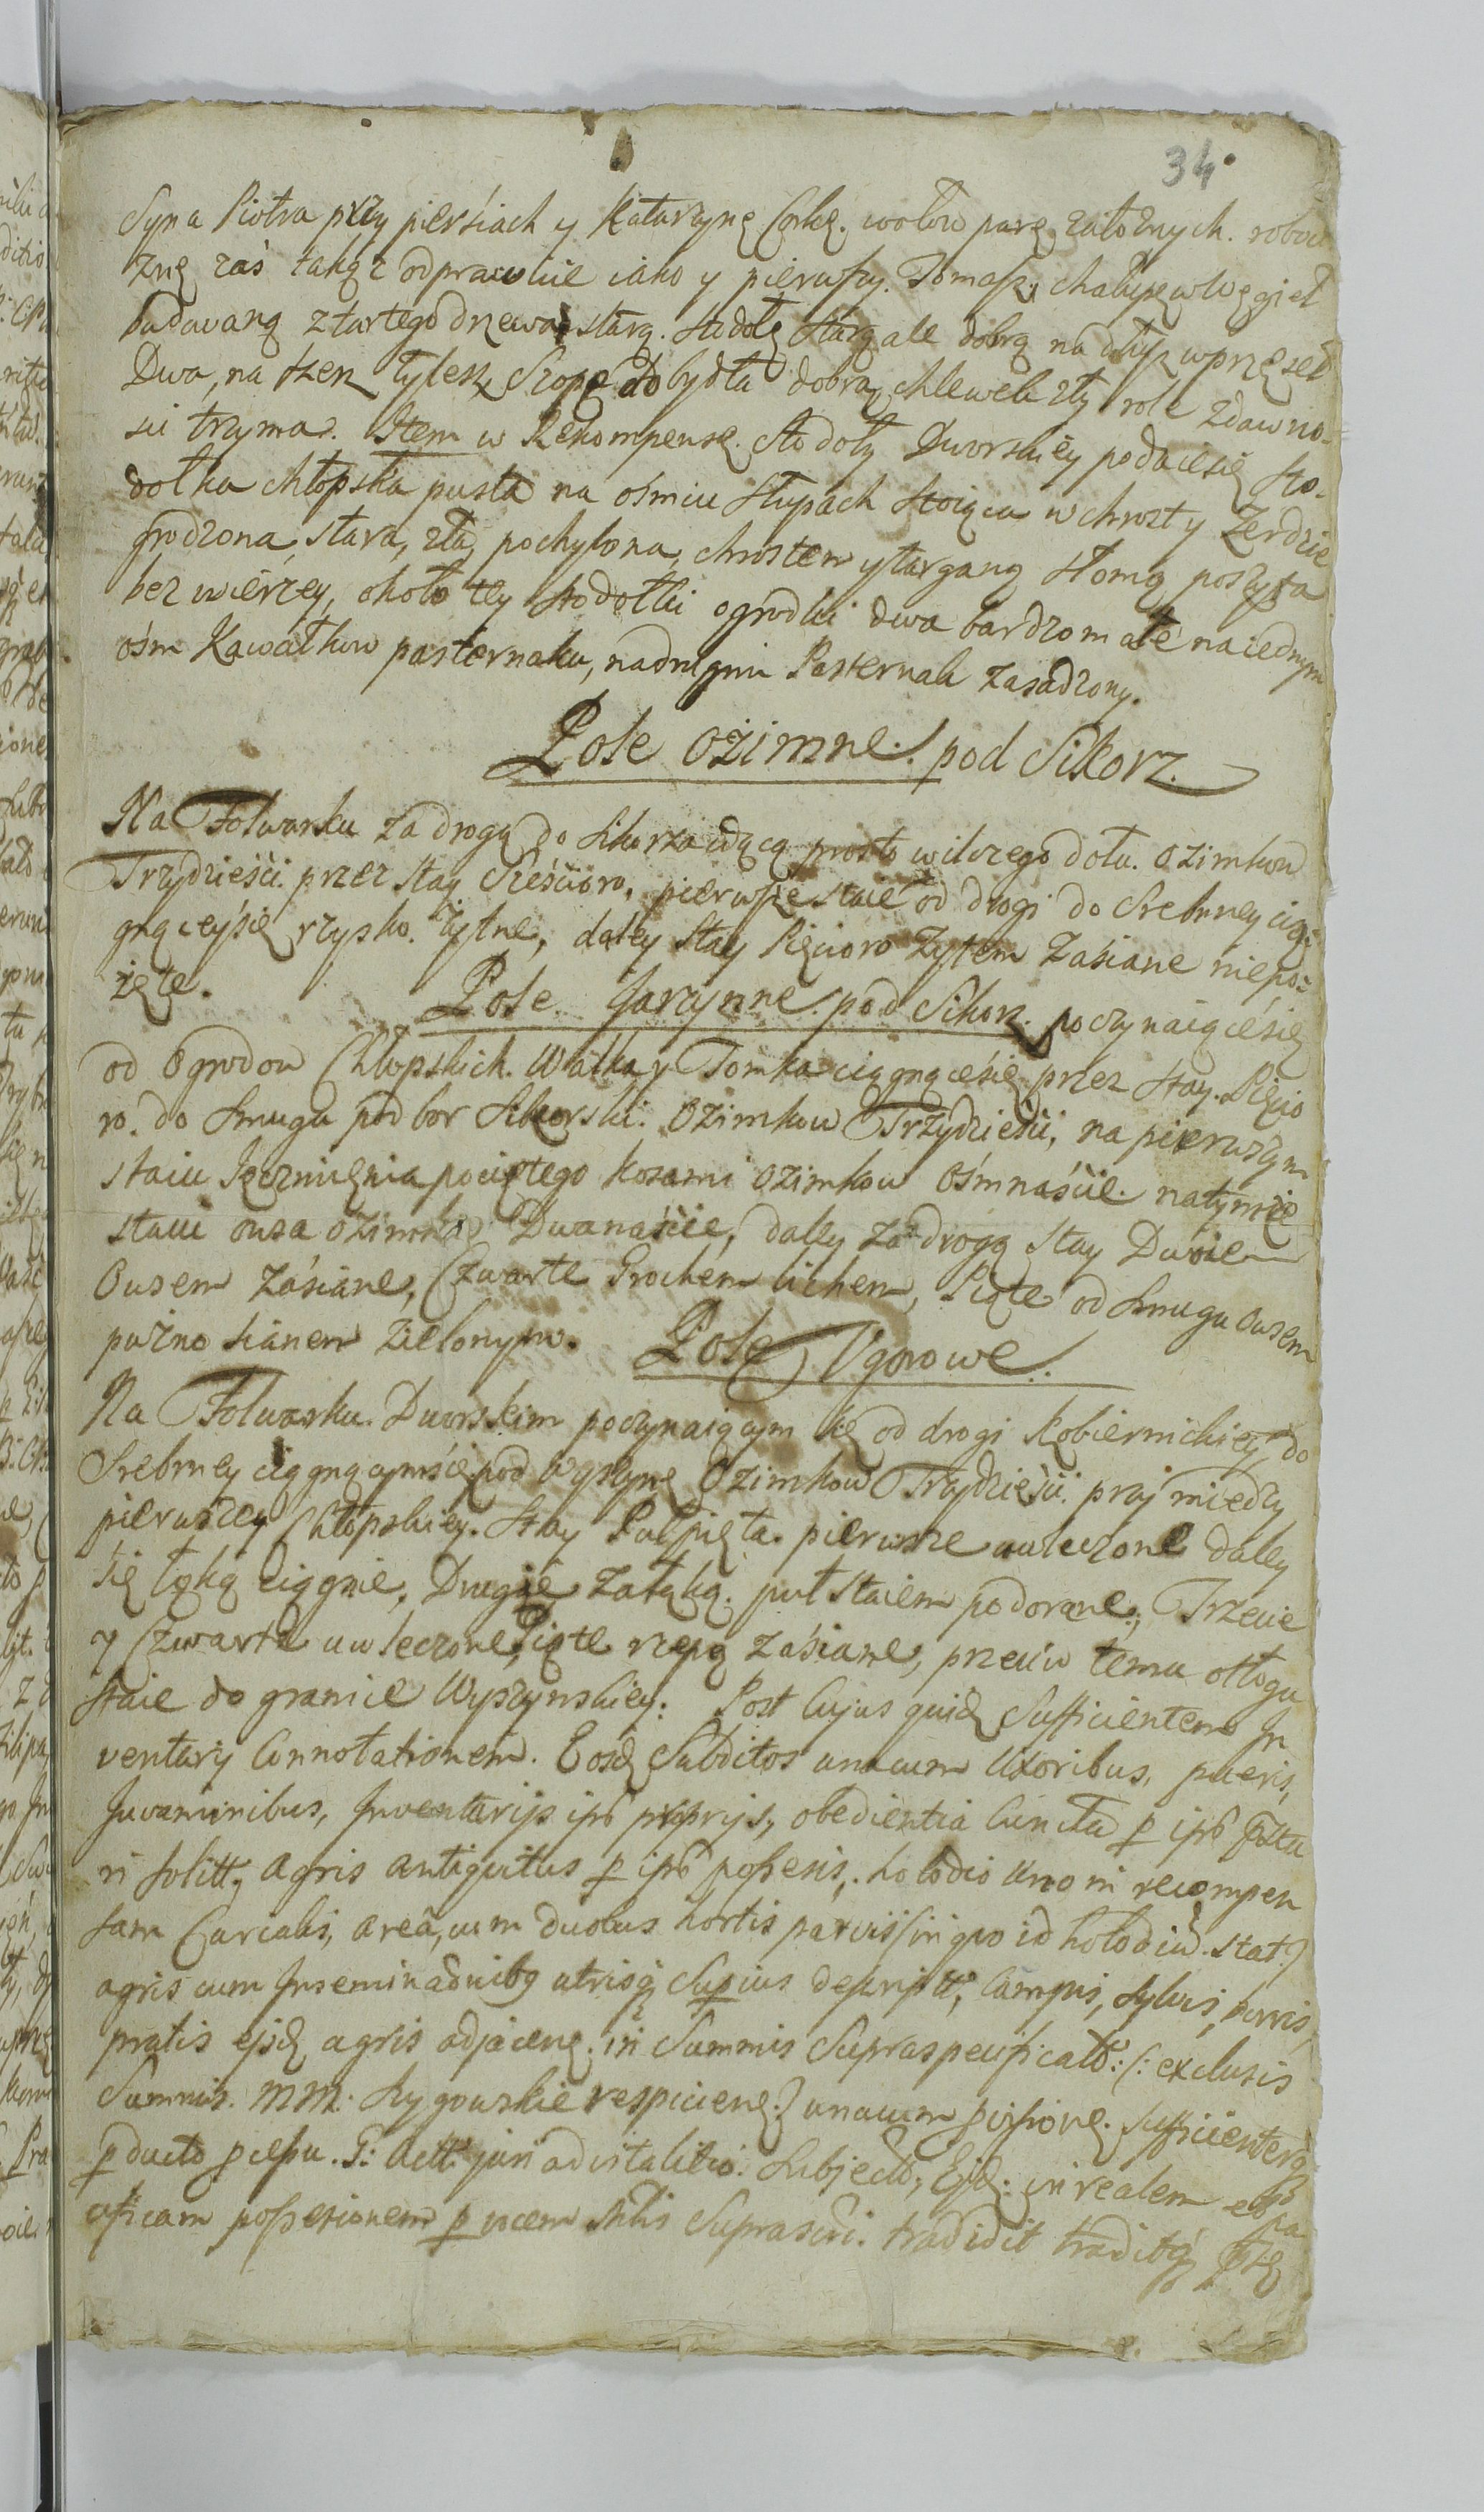 34
Syna Piotra przy pierśiach y Katarzynę Corkę. wołow parę załoznych. robow
znę zaś takąz odprawuie iako y pierwszy. Tomasz, chałupę w węgieł
budowaną z tartego drzewa starą. stodołę starą ale dobrą na dłusz w przęseł
Dwa, na szerz tylesz Szopę do bydła dobrą, chlewek zły rolę zdawno-
su trzyma. Item w Rekompensę. stodoły Dworskiey podaie się sto-
dołka chłopska pusta na ośmiu słupach stoiąca w chrost y Zerdzie
grodzona, stara, zła, pochylona, chrostem y targaną słomą poszyta
bez wierzey, około tey stodołki ogrodki dwa bardzo małe na iednym
ośm Kawałkow pasternaku, na drugim Pasternak zasadzony.
Pole ozimne. pod Sikorz.
Na Folwarku za drogą do Sikorza idącą prosto wilczego dołu. ozimkow
Trzydzieści. przez stay Sześcioro. pierwsze staie od drogi do Srebrney cią-
gnącey się rzysko. żytne, daley stay Pięcioro Zytem zaśiane niepo-
żęte. Pole Jarzynne. pod Sikorz. poczynaiące się
od Ogrodow Chłopskich. Walka y Tomka ciągnące się przez stay. Pięcio
ro. do smugu pod bor Sikorski. Ozimkow Trzydzieści, na pierwszym
staiu Jęczmienia pociętego kosami ozimkow Ośmnaście. na tymże
staiu owsa ozimkow Dwanaście, daley za drogą stay Dwoie
Owsem zaśiane, Czwarte Grochem lichem, Piąte od smugu owsem
pozno sianem zielonym. Pole Ugorowe.
Na Folwarku. Dworskim poczynaiącym się od drogi Kobiernickiey, do
Srebrney ciągnącym się pod Wyszynę Ozimkow Trzydzieści. przy miedzy
pierwszey Chłopskiey. stay Pułpięta. pierwsze uwleczone daley
się łąką ciągnie, Drugie za łąką. puł staiem podorane, Trzecie
y Czwarte uwleczone, Piąte rzepą zaśiane, przeciw temu odłogu
staie do granice Wyszynskiey. Post cujus quid Sufficientem In
ventarij Connotationem. Eosd Subditos unacum Uxoribus, pueris,
Juvaminibus, Inventarijs ips proprijs, obedientia cuncta p ips
ri solitt, agris antiquitus p ips possesis, holodio uno in recompen
sam Curialis, area, cum duobus hortis parvis (in quo id holodiu. stat)
agris cum Inseminaonibq utrisq Supius descriptt, Campis, sylvis, borris,
pratis ejsd agris adjacene. in Summis Supraspecificatt: (: exclusis
Summis. MM. Zygowskie respiciene.) unacum sufficienterq
p ducto. Actt. juri advitalitio. Subjectt, Ejsd. in realem et pa
cificam possesionem p ucem Suprascri. tradidit traditq